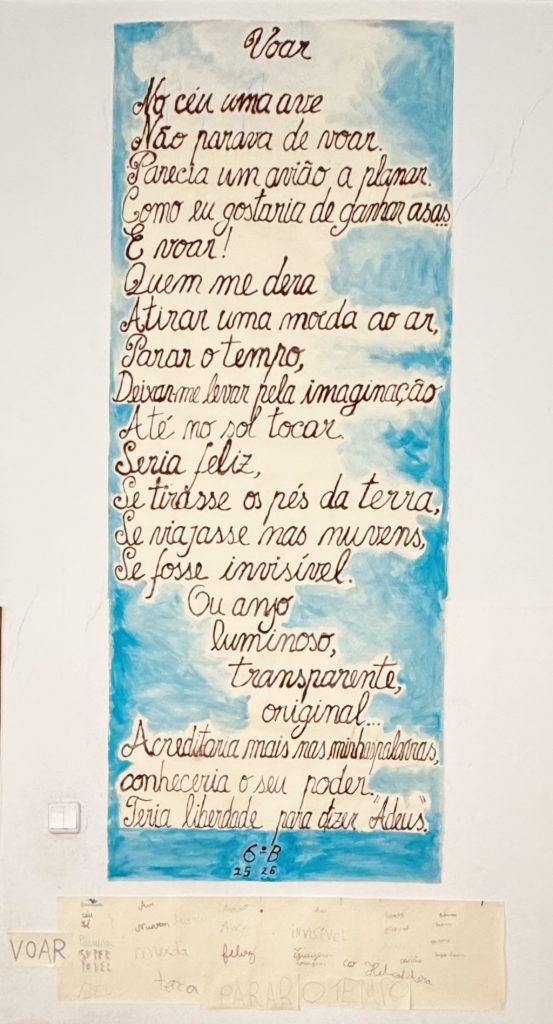 Voar
No céu uma ave
Não parava de voar.
Parecia um avião a planar.
Como eu gostaria de ganhar asas
E voar!
Quem me dera
Atirar uma moeda ao ar,
Parar o tempo,
Deixar-me levar pela imaginação
Até no sol tocar.
Seria feliz,
Se tirasse os pés da terra,
Se viajasse nas nuvens,
Se fosse invisível.
Ou anjo
luminoso,
transparente,
original...
Acreditaria mais nas minhas palavras,
conheceria o seu poder.
Teria liberdade para dizer "Adeus".
6º B
25 26
céu
nuvem
INVISÍVEL
VOAR
moeda
feliz
terra
PARAR O TEMPO